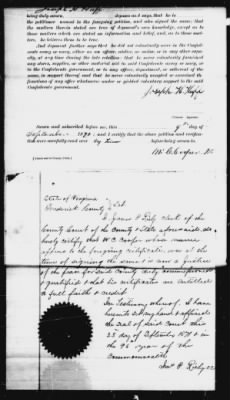 being duly sworn, deposes and says, that he is
the petitioner named in the foregoing petition, and who signed the same; that
the matters therein stated are true of deponent's own knowledge, except as to
those matters which are stated on information and belief, and, as to those matters,
he believes them to be true.
And deponent further says that he did not voluntarily serve in the Confederate
army or navy, either as an officer, soldier, or sailor, or in any other capacity,
at any time during the late rebellion; that he never voluntarily furnished
any stores, supplies, or other material aid to said Confederate army or navy, or
to the Confederate government, or to any officer, department, or adherent of the
same, in support thereof; and that he never voluntarily accepted or exercised the
functions of any office whatsoever under, or yielded voluntary support to the said
Confederate government.
Joseph H
Sworn and subscribed before me, this 9th day of
September 1871, and I certify that the above petition and verification
were carefully read over by him before being sworn to.
W. C. Cooper
State of Virginia
Frederick County
I James P. clerk of the
County Court of the County & State aforesaid do
hereby certify that W. C. Cooper whose name is
affixed to the foregoing certificate, was at the
time of signing the same & is now a Justice
of the peace for said County duly commissioned
and qualified & that his certificates are entitled
to full faith & credit.
In Testimony whereof I have
hereunto set my hand & affixed
the seal of said Court this
day of September 1871 & in
the 96 year of the
Commonwealth
Jas. P.